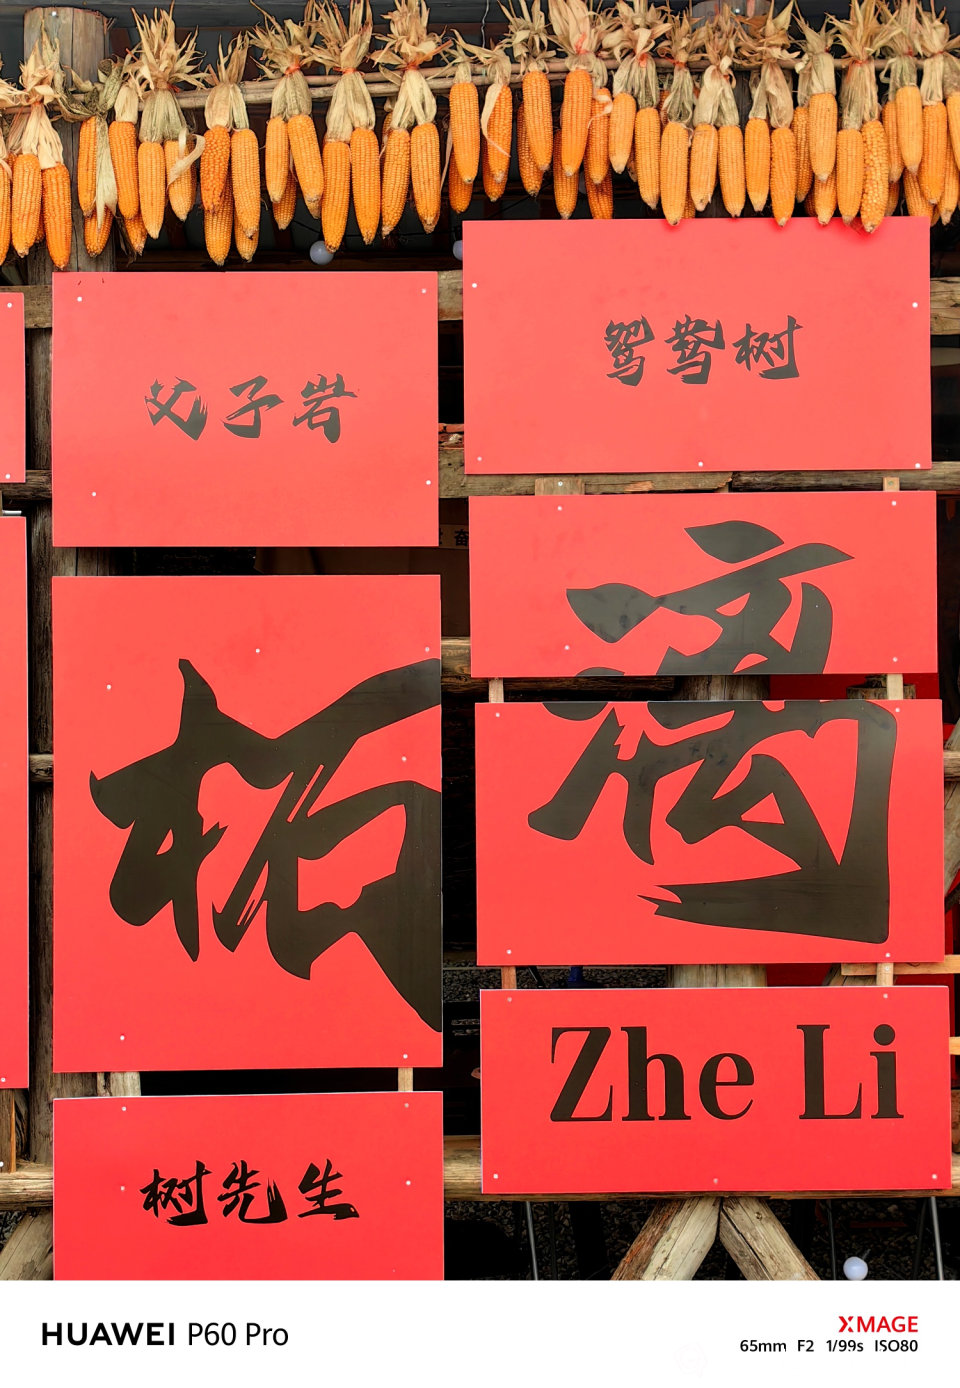 父子岩
鸳鸯树
柘
漓
Zhe Li
树先生
HUAWEI P60 Pro
XMAGE
65mm F2 1/99s ISO80